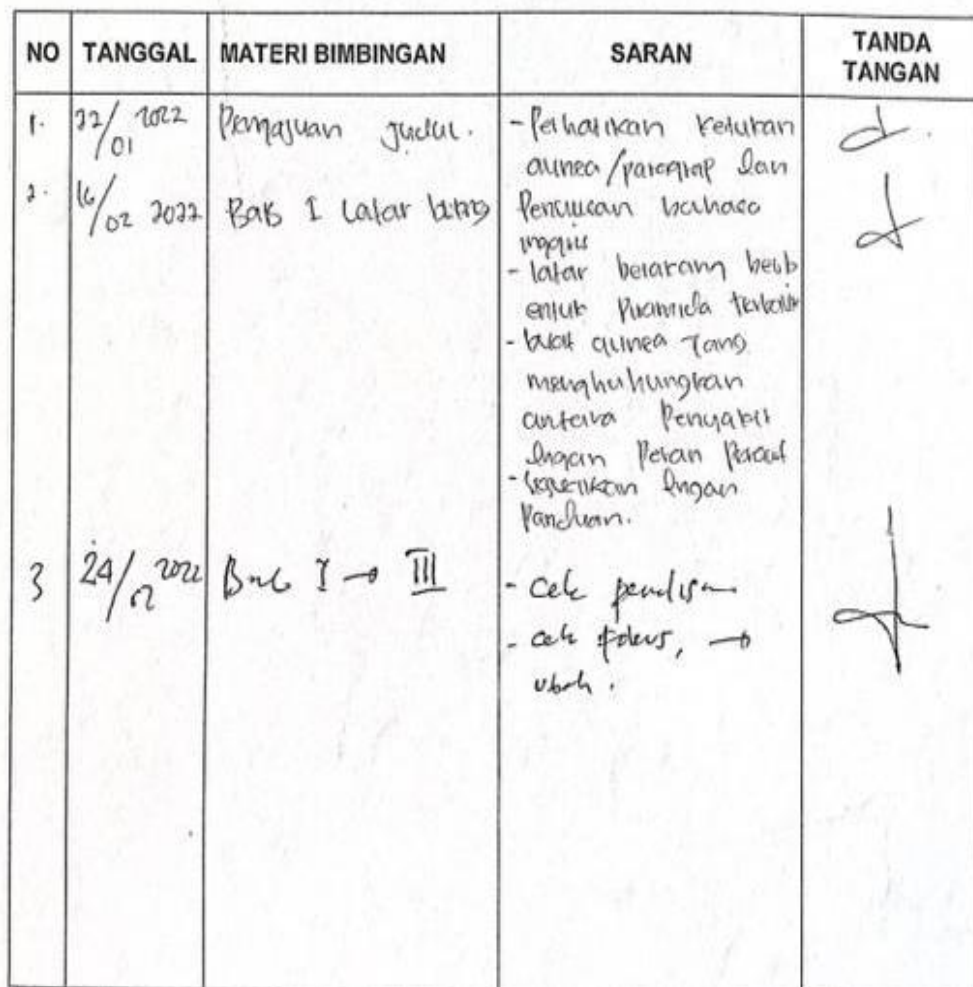 NO TANGGAL MATERI BIMBINGAN SARAN TANDA TANGAN
1. 22/01 2022 Pengajuan judul. - Perhatikan
alinea/paragrap dan
2. 16/02 2022 Bab I Latar blkng Penulisan bahasa
inggris
- latar belakang berb
entuk Piramida terbalik
- buat alinea yang
menghubungkan
antara Penyakit
dngan Peran Perawat
- dngan
Panduan.
3 24/02 2022 Bab I → III - cek penulisan
- cek fokus, →
ubah.